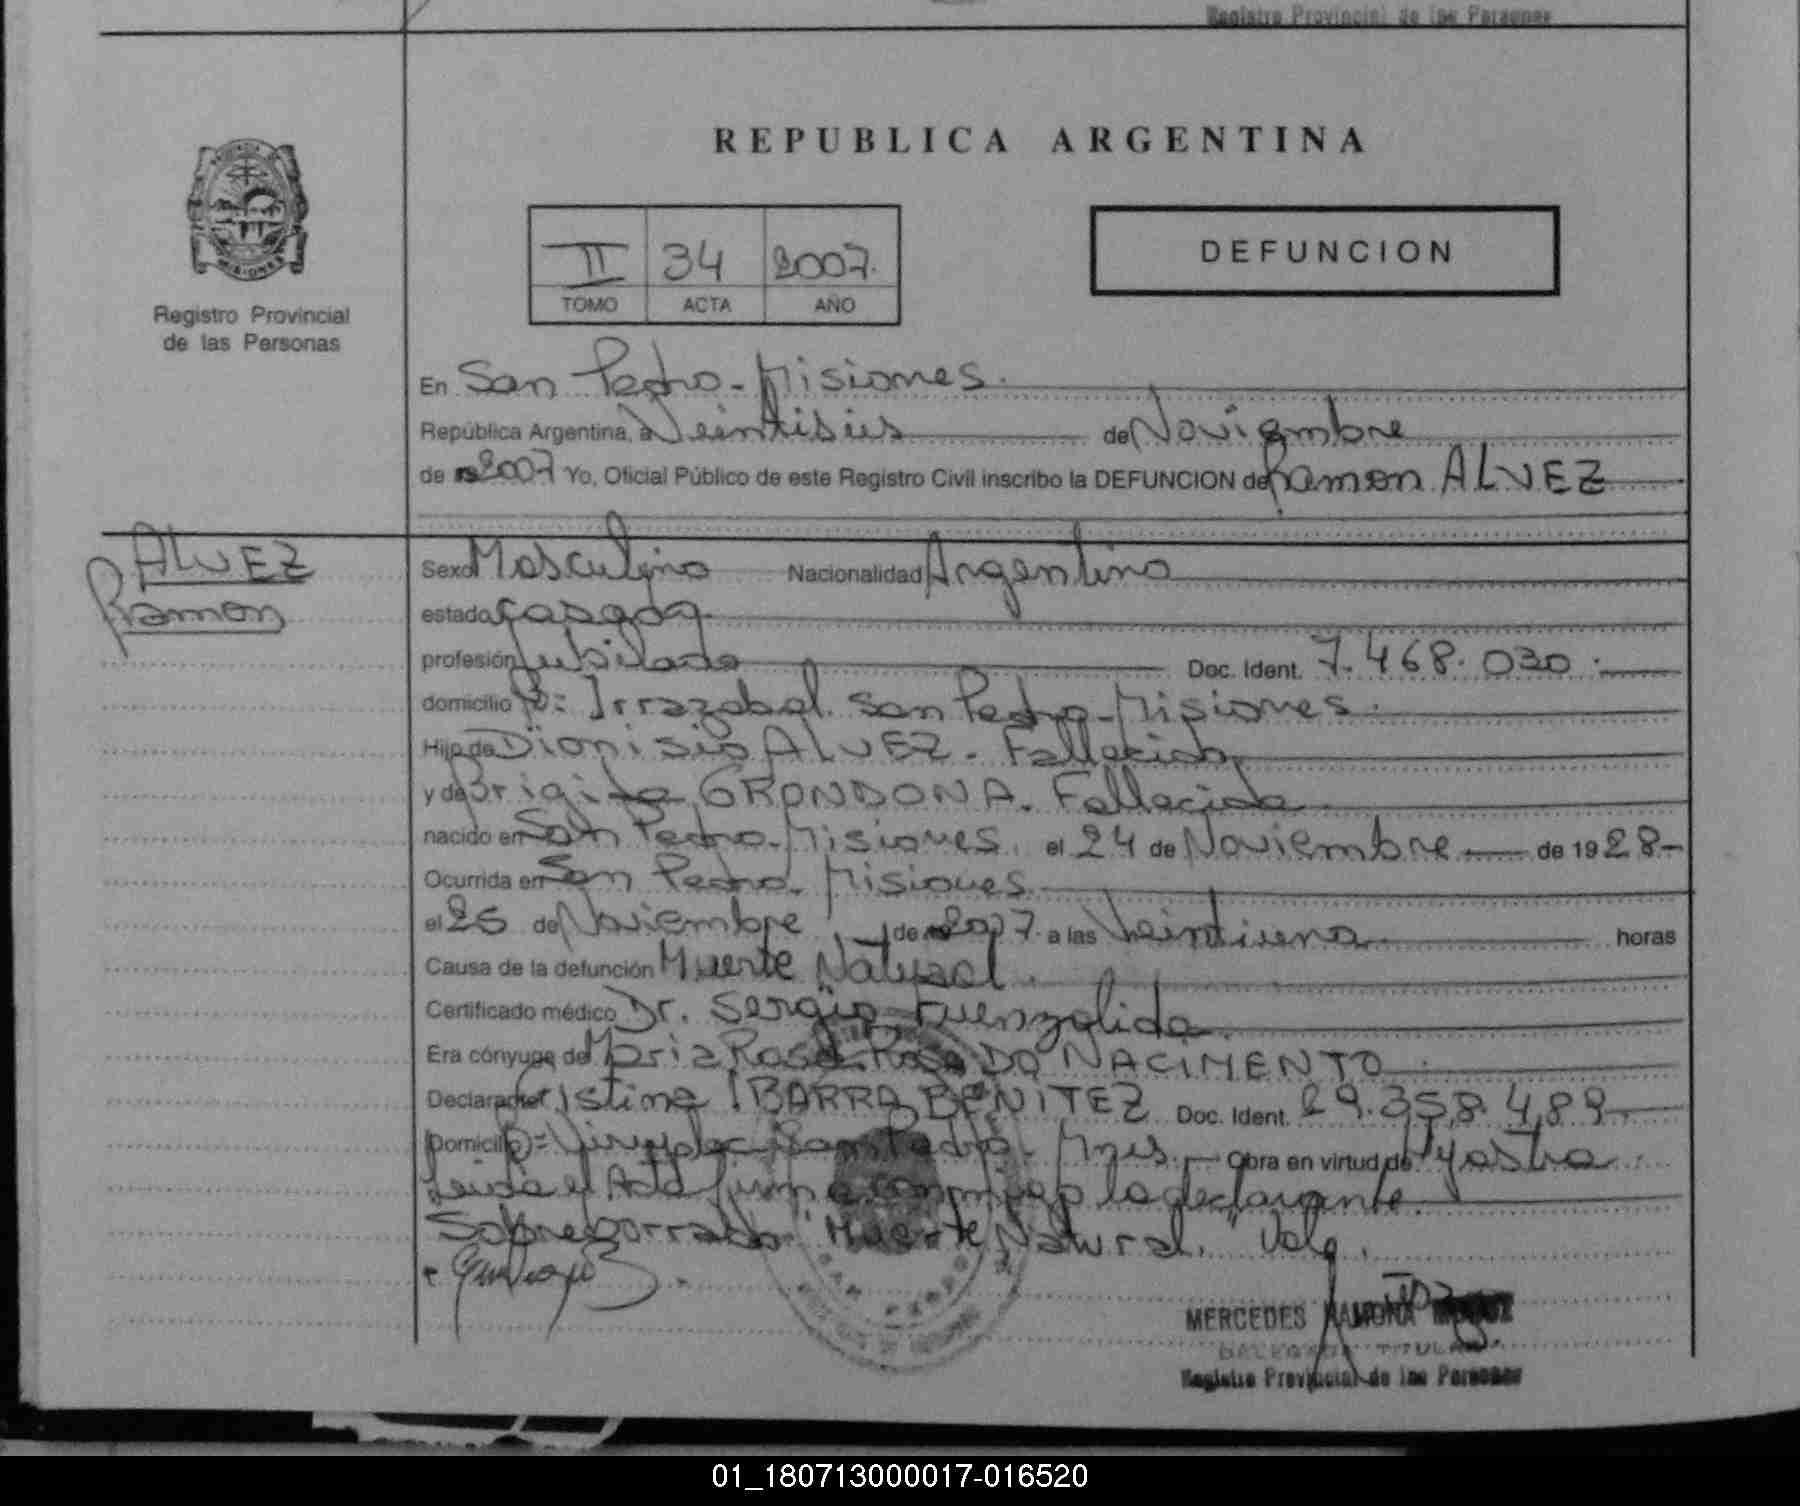 Registro Provincial de las Personas
REPUBLICA ARGENTINA
II 34 2007
TOMO ACTA AÑO
DEFUNCION
MISIONES
Registro Provincial
de las Personas
En San Pedro - Misiones.
República Argentina, a Veintiseis de Noviembre
de 2007 Yo, Oficial Público de este Registro Civil inscribo la DEFUNCION de Ramon ALVEZ
ALVEZ
Ramon
Sexo Masculino Nacionalidad Argentino
estado casado
profesión Jubilado Doc. Ident. 7.468.030.
domicilio Irrazabal. San Pedro - Misiones.
Hijo de Dionisio ALVEZ - Fallecido
y de Brigida GRONDONA. Fallecida
nacido en San Pedro - Misiones. el 24 de Noviembre de 1928-
Ocurrida en San Pedro - Misiones
el 25 de Noviembre de 2007 a las Veintiuna horas
Causa de la defunción Muerte Natural.
Certificado médico Dr. Sergio Fuenzalida
Era cónyuge de Maria Rosa DO NACIMENTO
Declarante Cristina IBARRA BENITEZ Doc. Ident. 29.358.489
Domicilio = San Pedro - Mnes. Obra en virtud de
Leida el Acta firma conmigo la declarante.
Sobreborrado "Muerte Natural." Vale.
MERCEDES RAMONA
DELEGADA TITULAR
Registro Provincial de las Personas
01_180713000017-016520